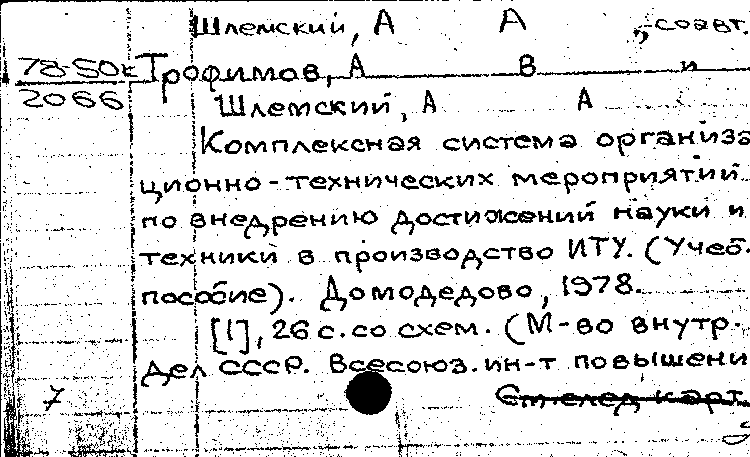 Шлемский, А А , соавт.
78-50к Трофимов, А В и
2066
Шлемский, А А
Комплексная система организа
ционно-технических мероприятий
по внедрению достижений науки и
техники в производство ИТУ. (Учеб.
пособие). Домодедово, 1978.
[1], 26 с. со схем. (М-во внутр.
дел СССР. Всесоюз. ин-т повышени
7 См. след карт.